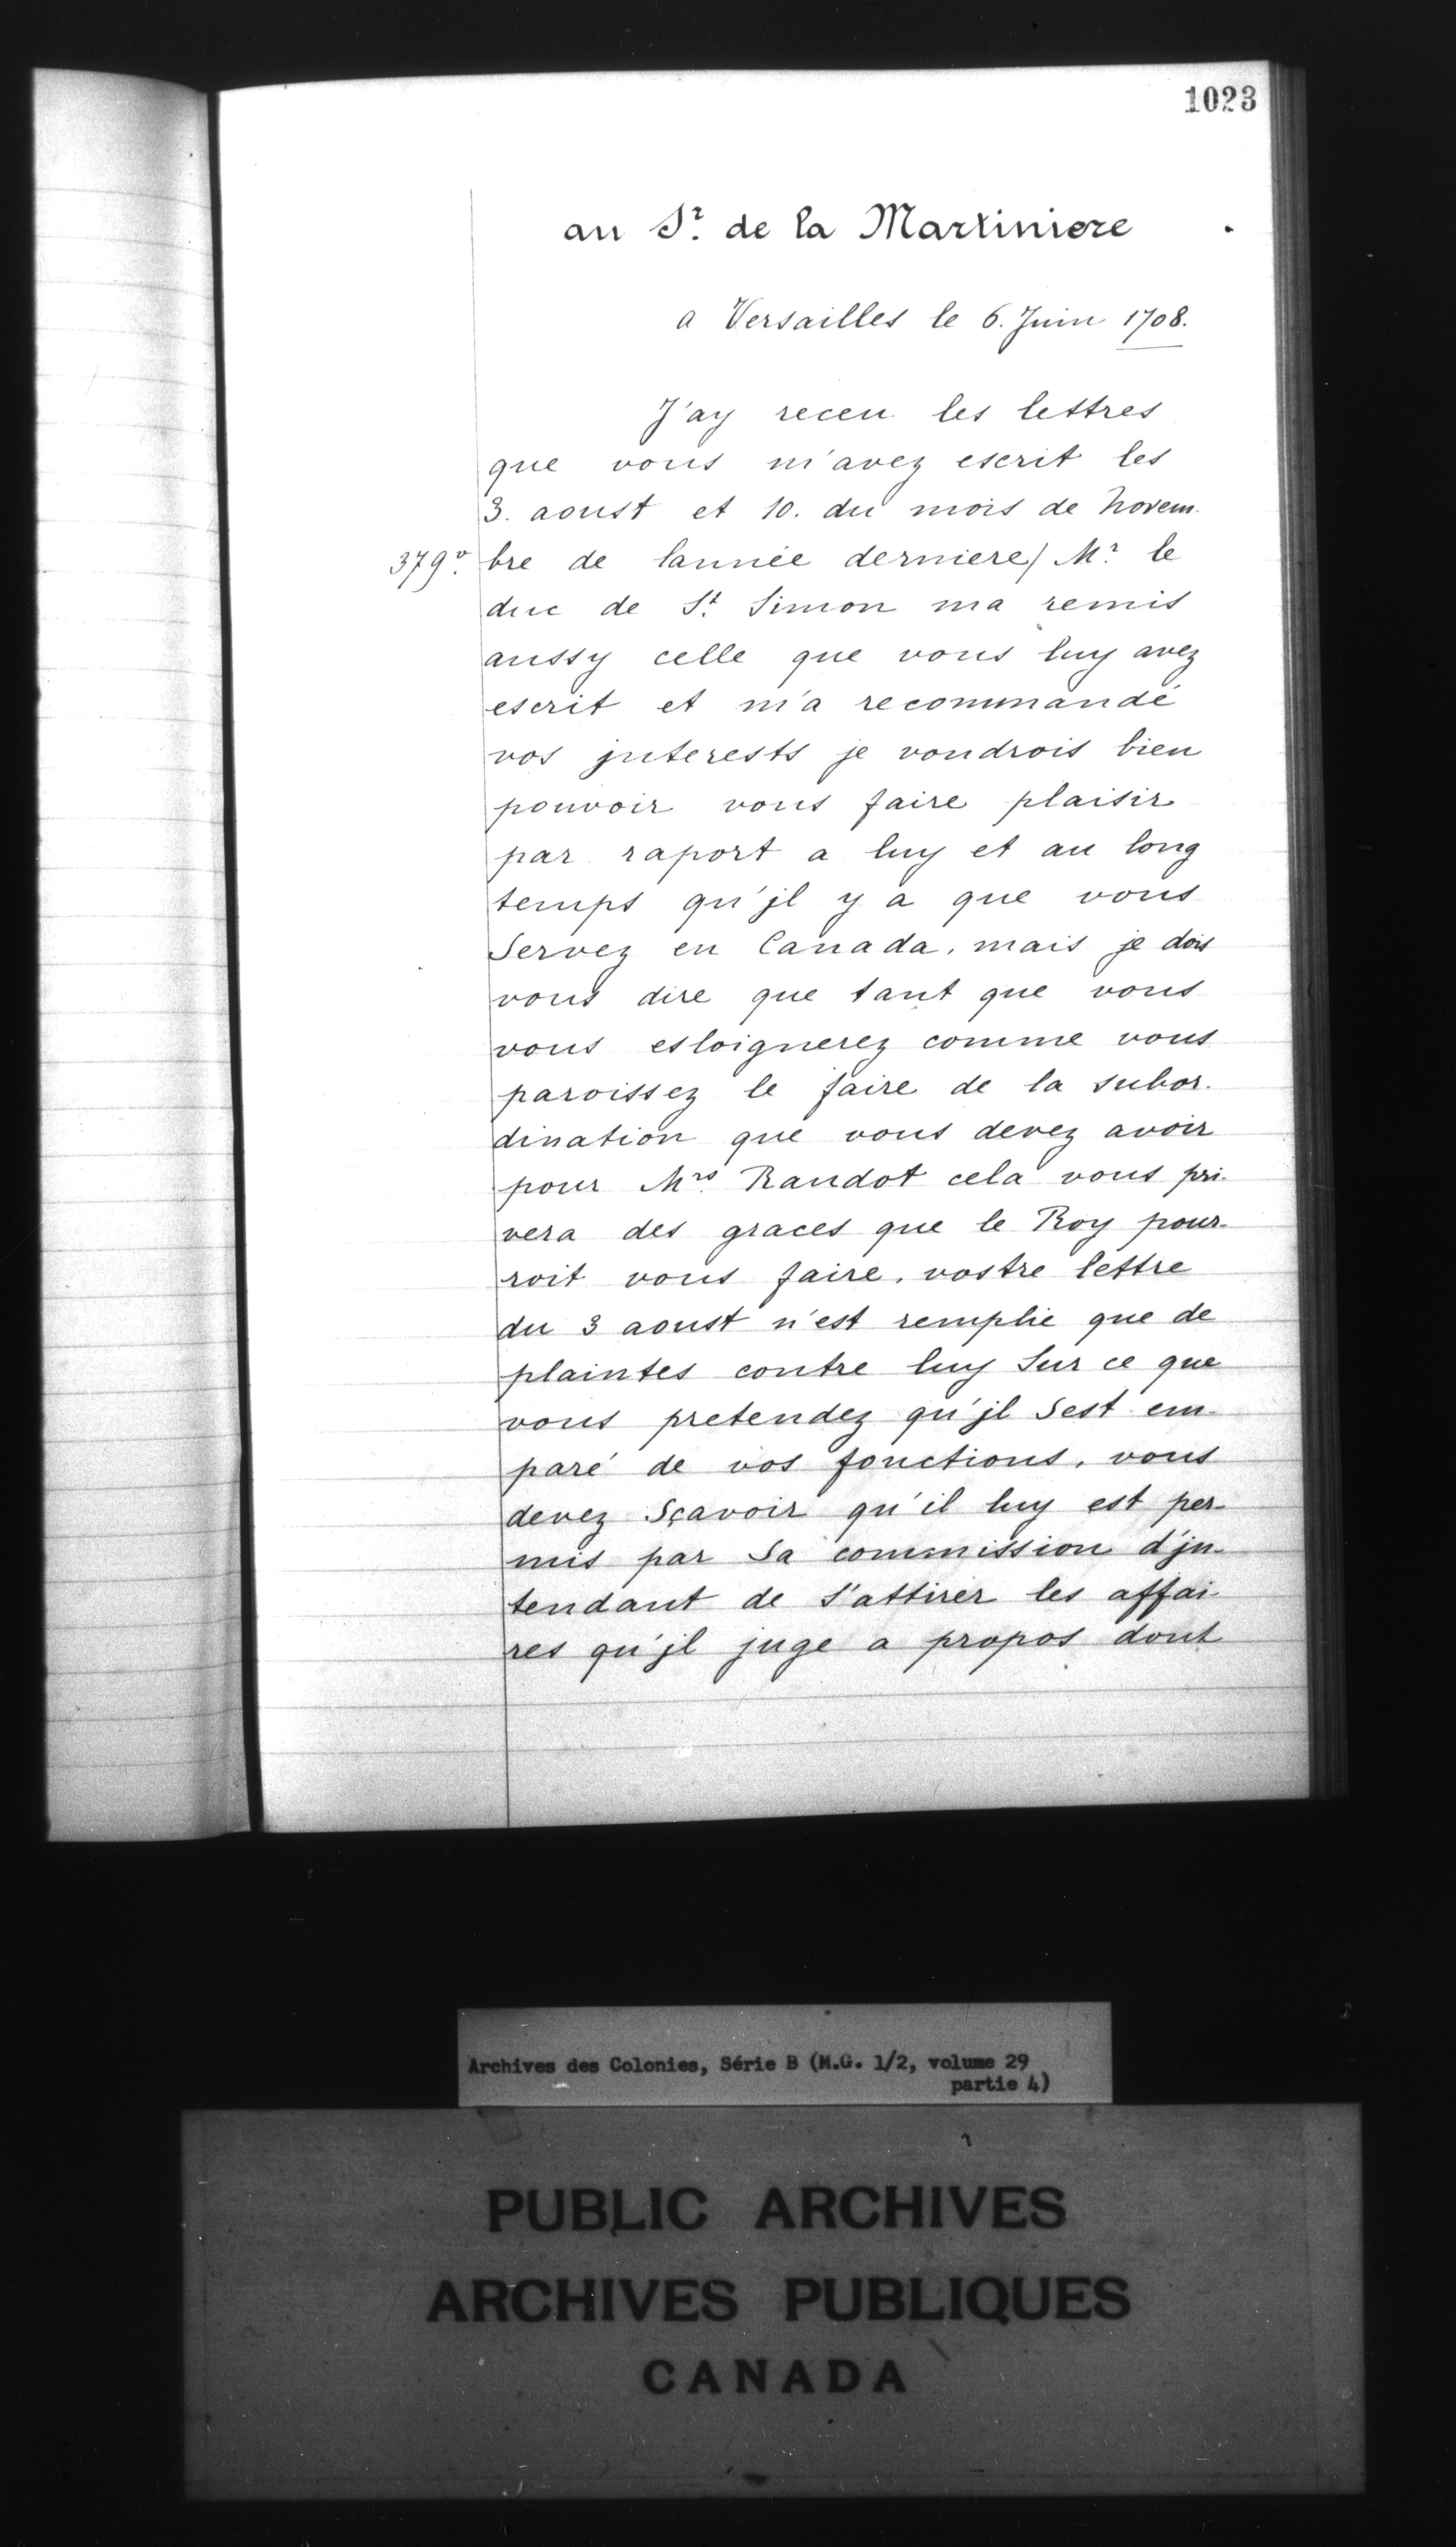 1023
au Sr. de la Martiniere
a Versailles le 6. Juin 1708.
J'ay receu les lettres
que vous m'avez escrit les
3. aoust et 10. du mois de Novem-
379vo. bre de lannée derniere/ Mr. le
duc de St. Simon ma remis
aussy celle que vous luy avez
escrit et m'a recommandé
vos jnterests je voudrois bien
pouvoir vous faire plaisir
par raport a luy et au long
temps qu'jl y a que vous
Servez en Canada, mais je dois
vous dire que tant que vous
vous esloignerez comme vous
paroissez le faire de la subor-
dination que vous devez avoir
pour Mrs. Raudot cela vous pri-
vera des graces que le Roy pour-
roit vous faire, vostre lettre
du 3 aoust n'est remplie que de
plaintes contre luy Sur ce que
vous pretendez qu'jl Sest em-
paré de vos fonctions, vous
devez Sçavoir qu'il luy est per-
mis par Sa commission d'jn-
tendant de S'attirer les affai-
res qu'jl juge a propos dont
Archives des Colonies, Série B (M.G. 1/2, volume 29
partie 4)
PUBLIC ARCHIVES
ARCHIVES PUBLIQUES
CANADA